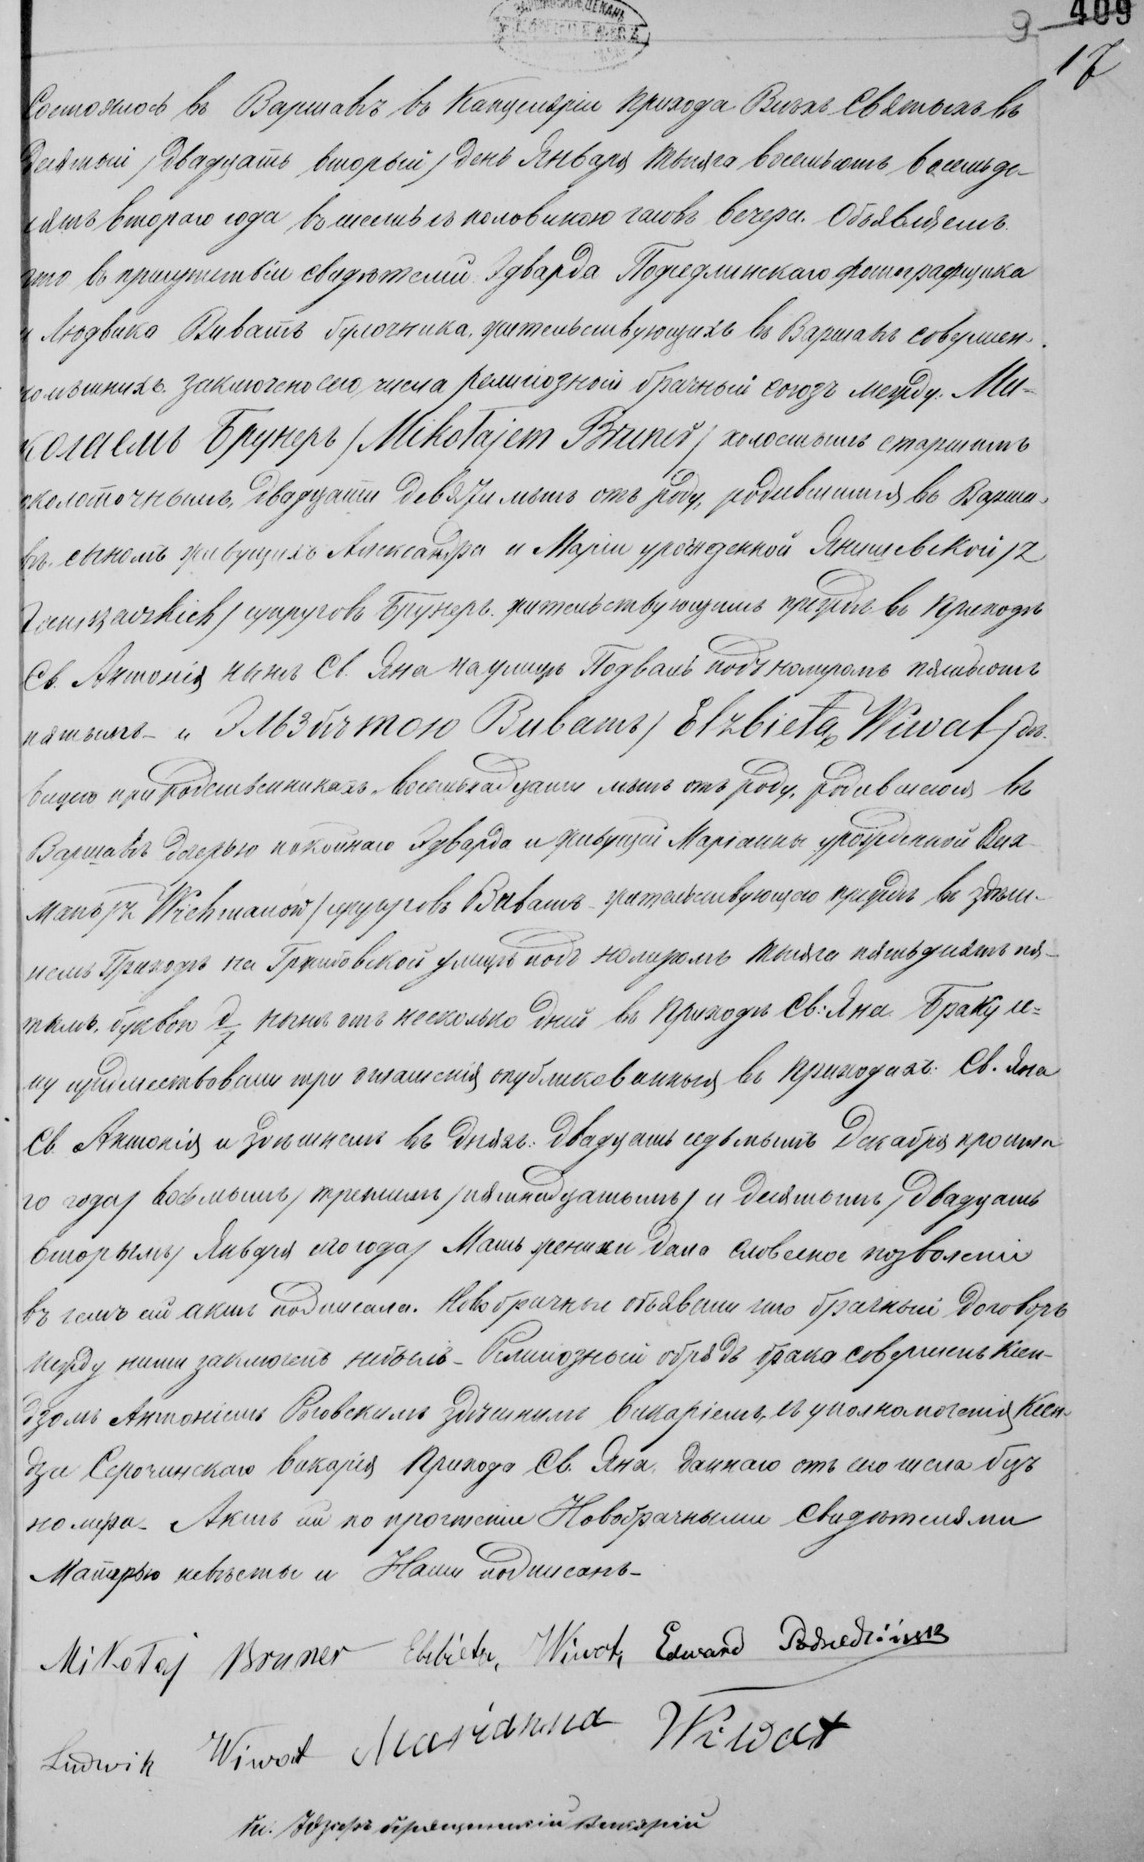 409
9
17
Состоялось въ Варшавѣ въ Канцеляріи прихода Всѣхъ Святыхъ въ
десятый /двадцать второй/ день Января тысяча восемьсотъ восемьде-
сятъ втораго года въ шесть съ половиною часовъ вечера. Объявляемъ
что въ присутствіи свидѣтелей Эдварда Подседлинскаго фотографщика
и Людвика Виватъ булочника, жительствующихъ въ Варшавѣ совершен-
нолѣтнихъ заключено сего числа религіозный брачный союзъ между. Ми-
колаемъ Брунеръ /Mikołajem Bruner/ холостымъ старшимъ
околоточнымъ, двадцати девяти лѣтъ отъ роду, родившимся въ Варша-
вѣ. сыномъ живущихъ Александра и Маріи урожденной Янишевской /z
Janiszewskich/ супруговъ Брунеръ. жительствующимъ прежде въ приходѣ
Св. Антонія нынѣ Св. Яна на улицѣ Подваль подъ номеромъ пятьсотъ
пятымъ - и Эльзбѣтою Виватъ / Elżbietą Wiwat / дѣ-
вицею при родственникахъ, восемнадцати лѣтъ отъ роду, родившеюся въ
Варшавѣ дочерью покойнаго Эдварда и живущей Маріанны урожденной Вих-
манъ /z Wichmanów/ супруговъ Виватъ - жительствующею прежде въ здѣш-
немъ Приходѣ на Гржибовской улицѣ подъ номеромъ тысяча пятьдесятъ пя-
тымъ, буквою нынѣ отъ несколько дней въ приходѣ Св. Яна. Браку се-
му предшествовали три оглашенія опубликованныя въ приходахъ: Св. Яна
Св. Антонія и здѣшнемъ въ дняхъ: двадцать седьмымъ Декабря прошла-
го года / восьмымъ / третьемъ /пятнадцатымъ/ и десятымъ /двадцать
вторымъ/ Января сего года / Мать дала словесное позволеніе
въ чемъ сей актъ подписала. Новобрачные объявили что брачный договоръ
между ними заключенъ небылъ - Религіозный обрядъ брака совершенъ Ксен-
дзомъ Антоніемъ Роговскимъ здѣшнимъ викаріемъ, съ уполномоченія Ксен-
дза Серочинскаго викарія прихода Св. Яна, даннаго отъ сего числа безъ
номера - Актъ сей по прочтеніи Новобрачными свидѣтелями
Матерью невѣсты и Нами подписанъ -
Mikołaj Bruner Elżbieta Wiwat, Edward
Ludwik Wiwat Marianna Wiwat
Кс. викарій